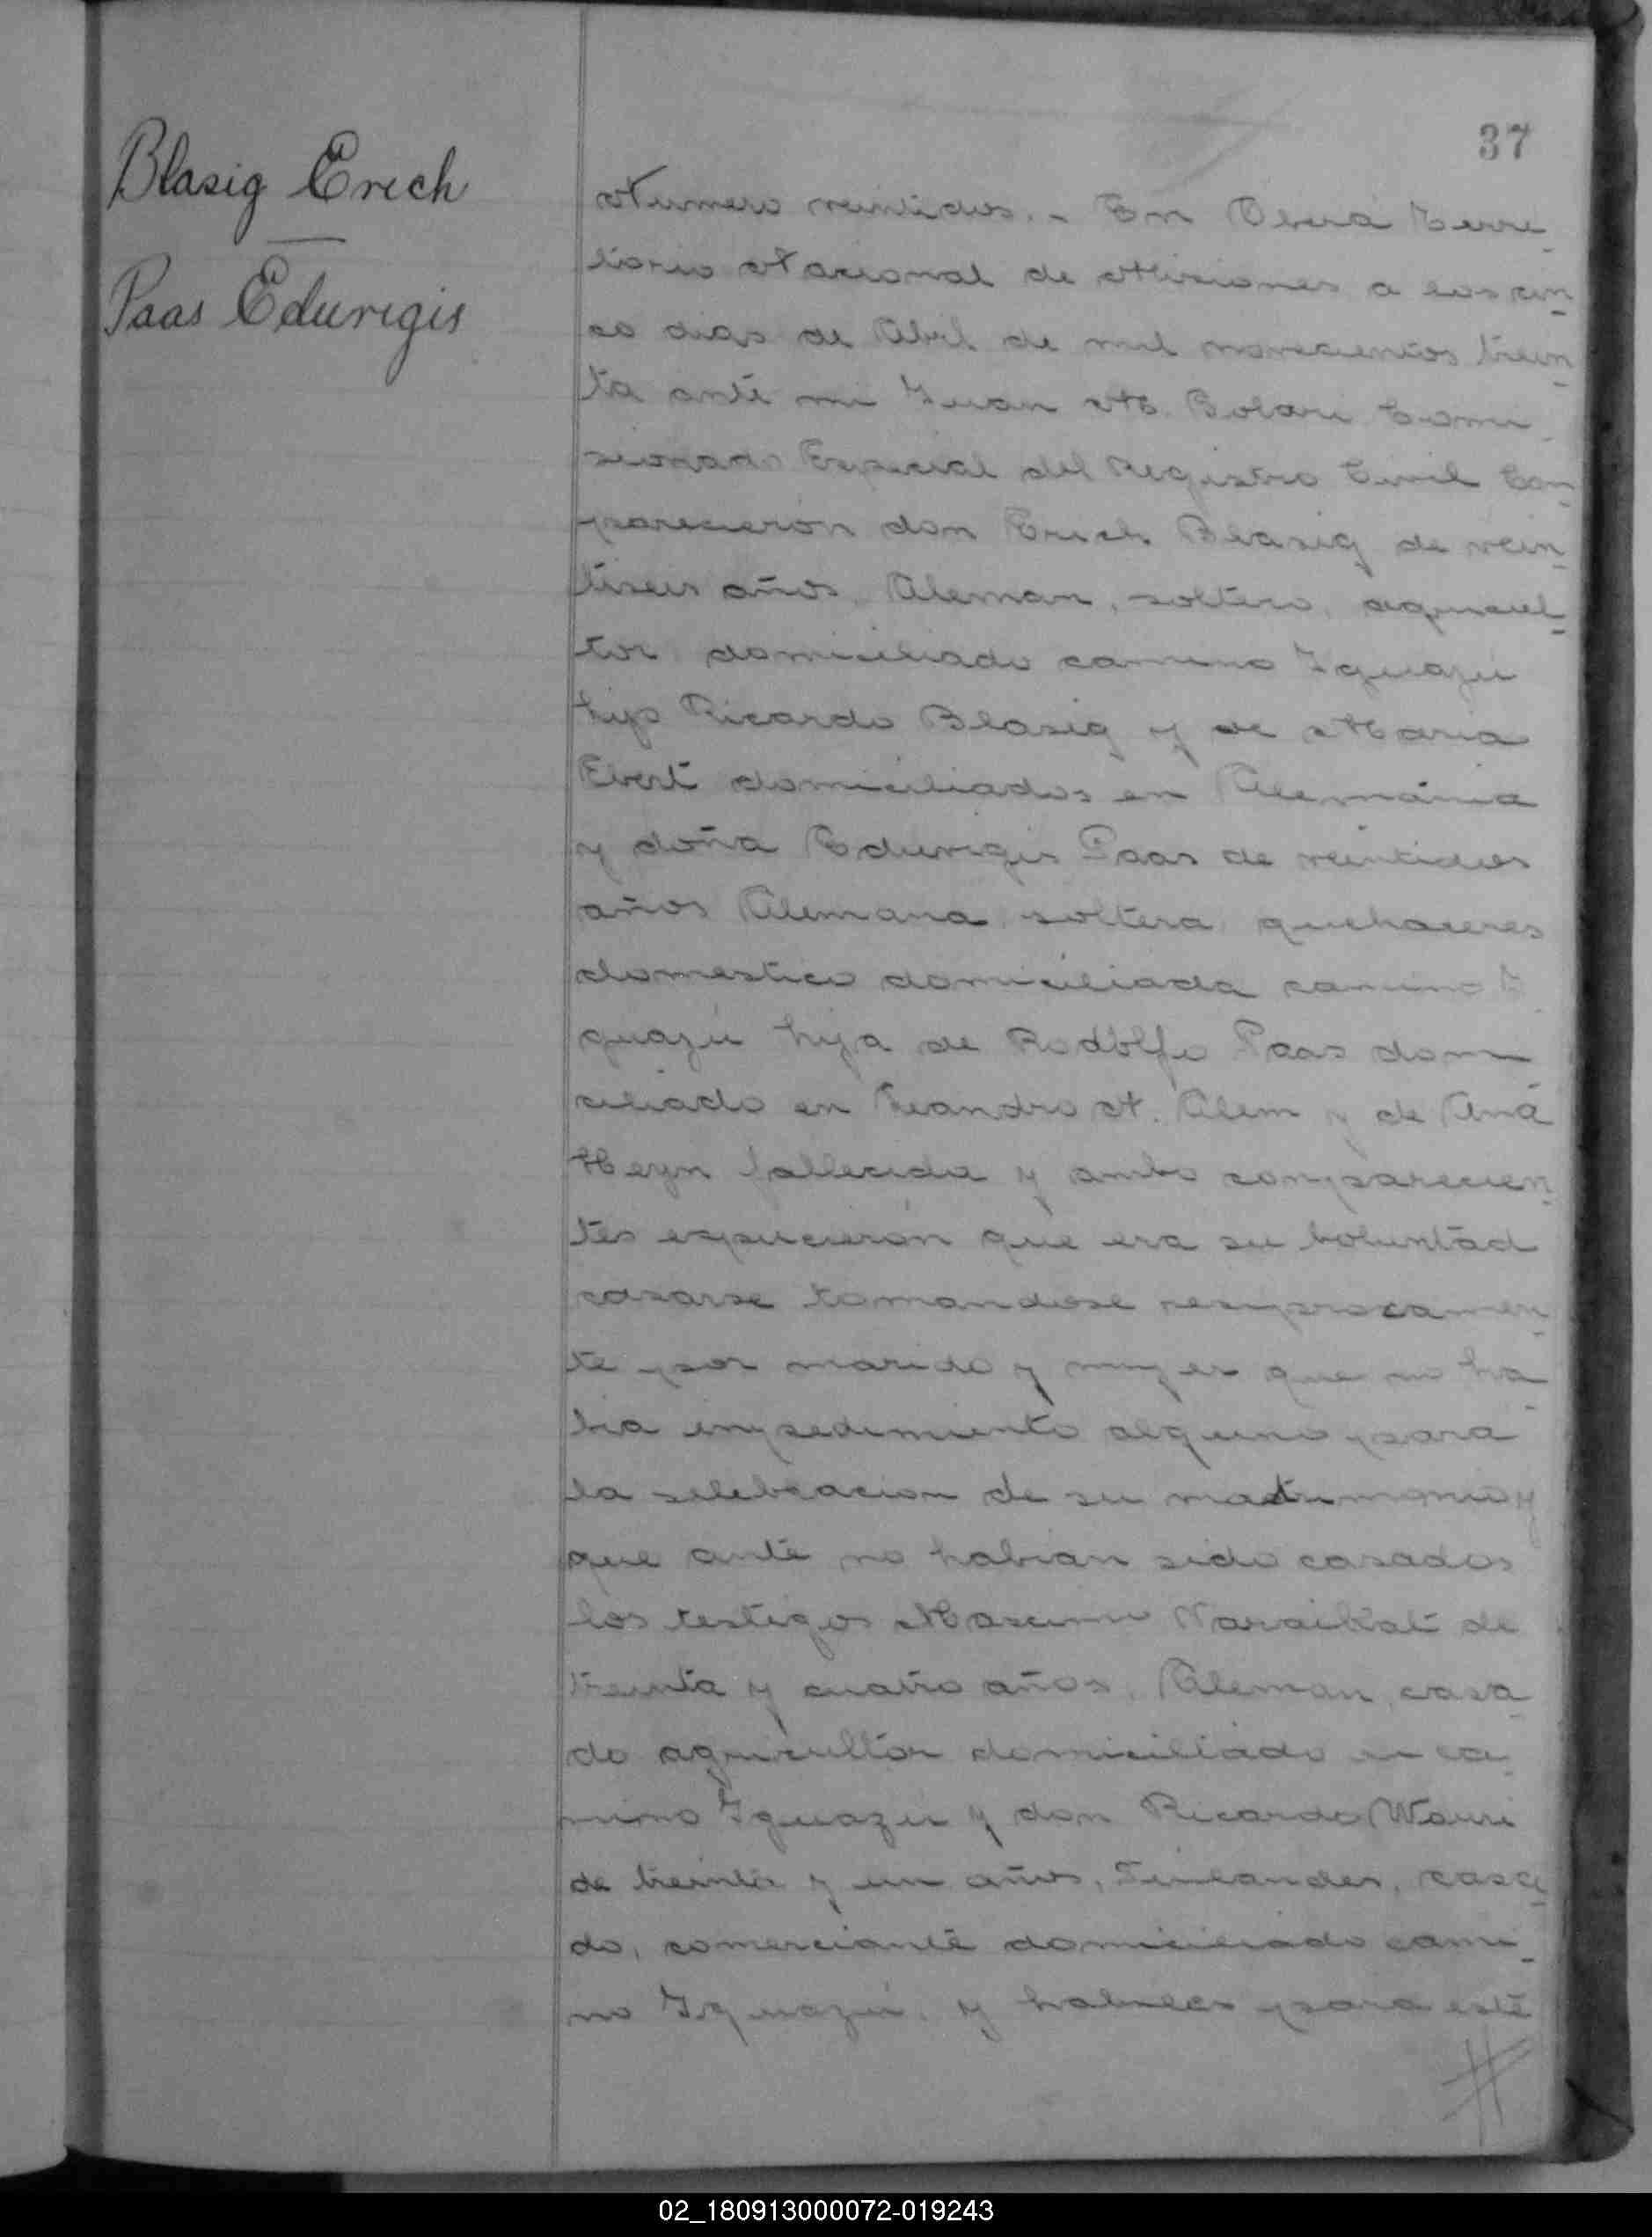 37
Blasig Erich
Paas Eduvigis
Numero veintidos. - En Oberá Terri_
torio Nacional de Misiones a los cin_
co dias de Abril de mil novecientos trein_
ta ante mi Juan M. Comi_
sionado Especial del Registro Civil Com_
parecieron don Erich Blasig de vein_
tiseis años, Aleman, soltero, agricul_
tor domiciliado camino Iguazú
hijo Ricardo Blasig y de Maria
Evert domiciliados en Alemánia
y doña Eduvigis Paas de veintidos
años Alemana soltera, quehaceres
domestico domiciliada camino I
guazú hija de Rodolfo Paas domi
ciliado en Leandro N. Alem y de Ana
Heyn fallecida y ambo comparecien_
tes expucieron que era su boluntad
casarse tomandose resiprocamen_
te por marido y mujer que no ha_
bia impedimiento alguno para
la selebracion de su matrimonio y
que ante no habian sido casados
los testigos de
treinta y cuatro años, Aleman, casa_
do agricultor domiciliado en ca_
mino Iguazú y don Ricardo
de treinta y un años, Finlandes, casa_
do, comerciante domiciliado cami_
no Iguazú, y habiles para este
#
02_180913000072-019243